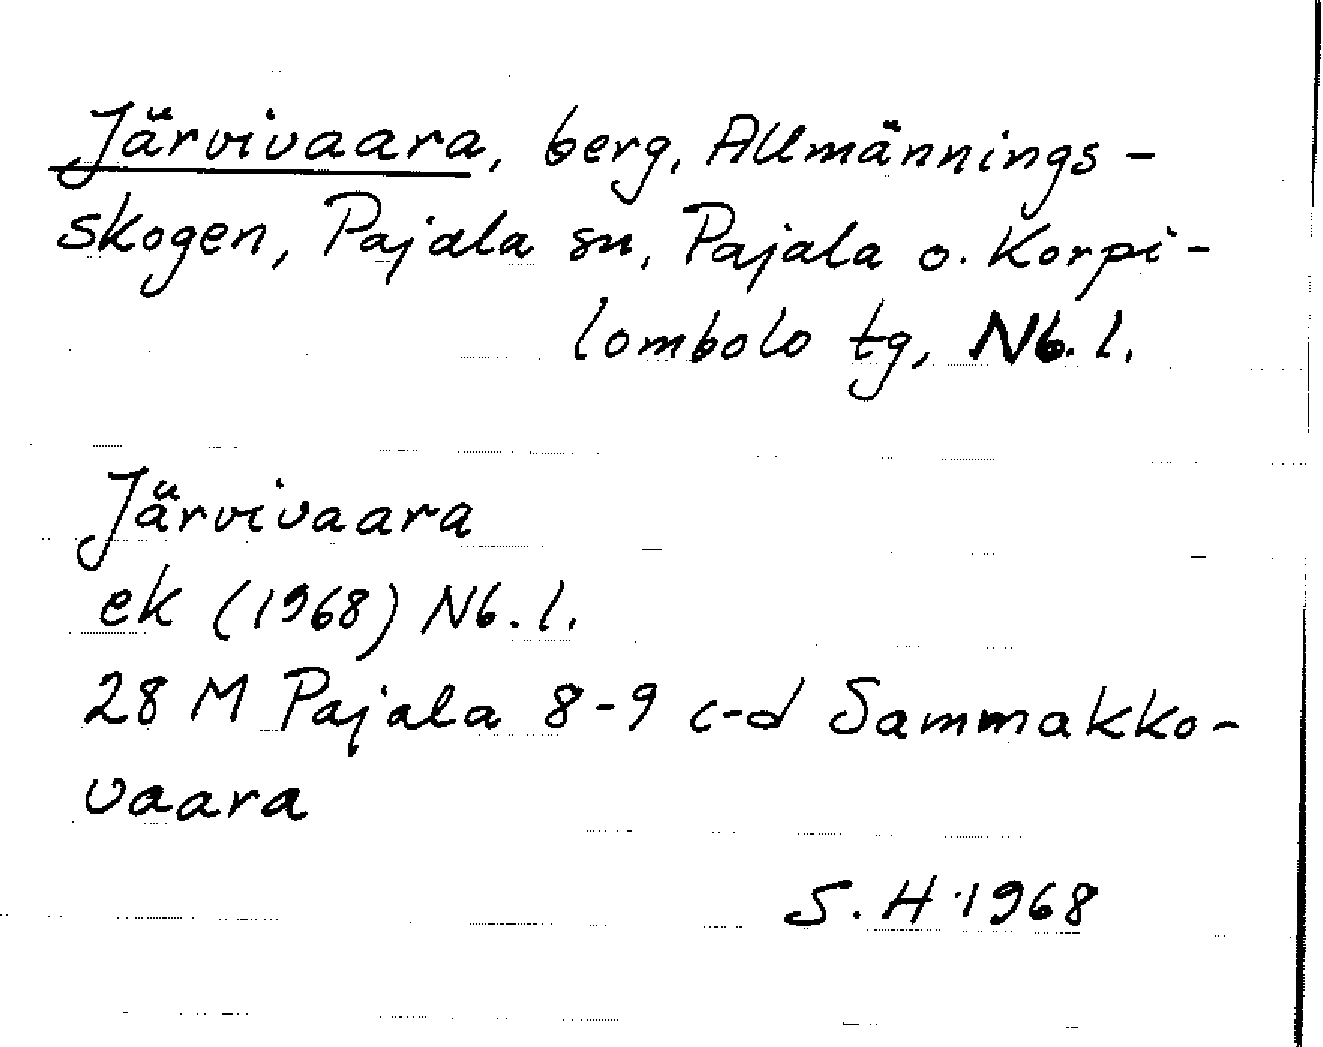 Järvivaara, berg, Allmännings-
skogen, Pajala sn, Pajala o. Korpi-
lombolo tg, Nb. l.
Järvivaara
ek (1968) Nb. l.
28 M Pajala 8-9 c-d Sammakko-
vaara
S. H 1968